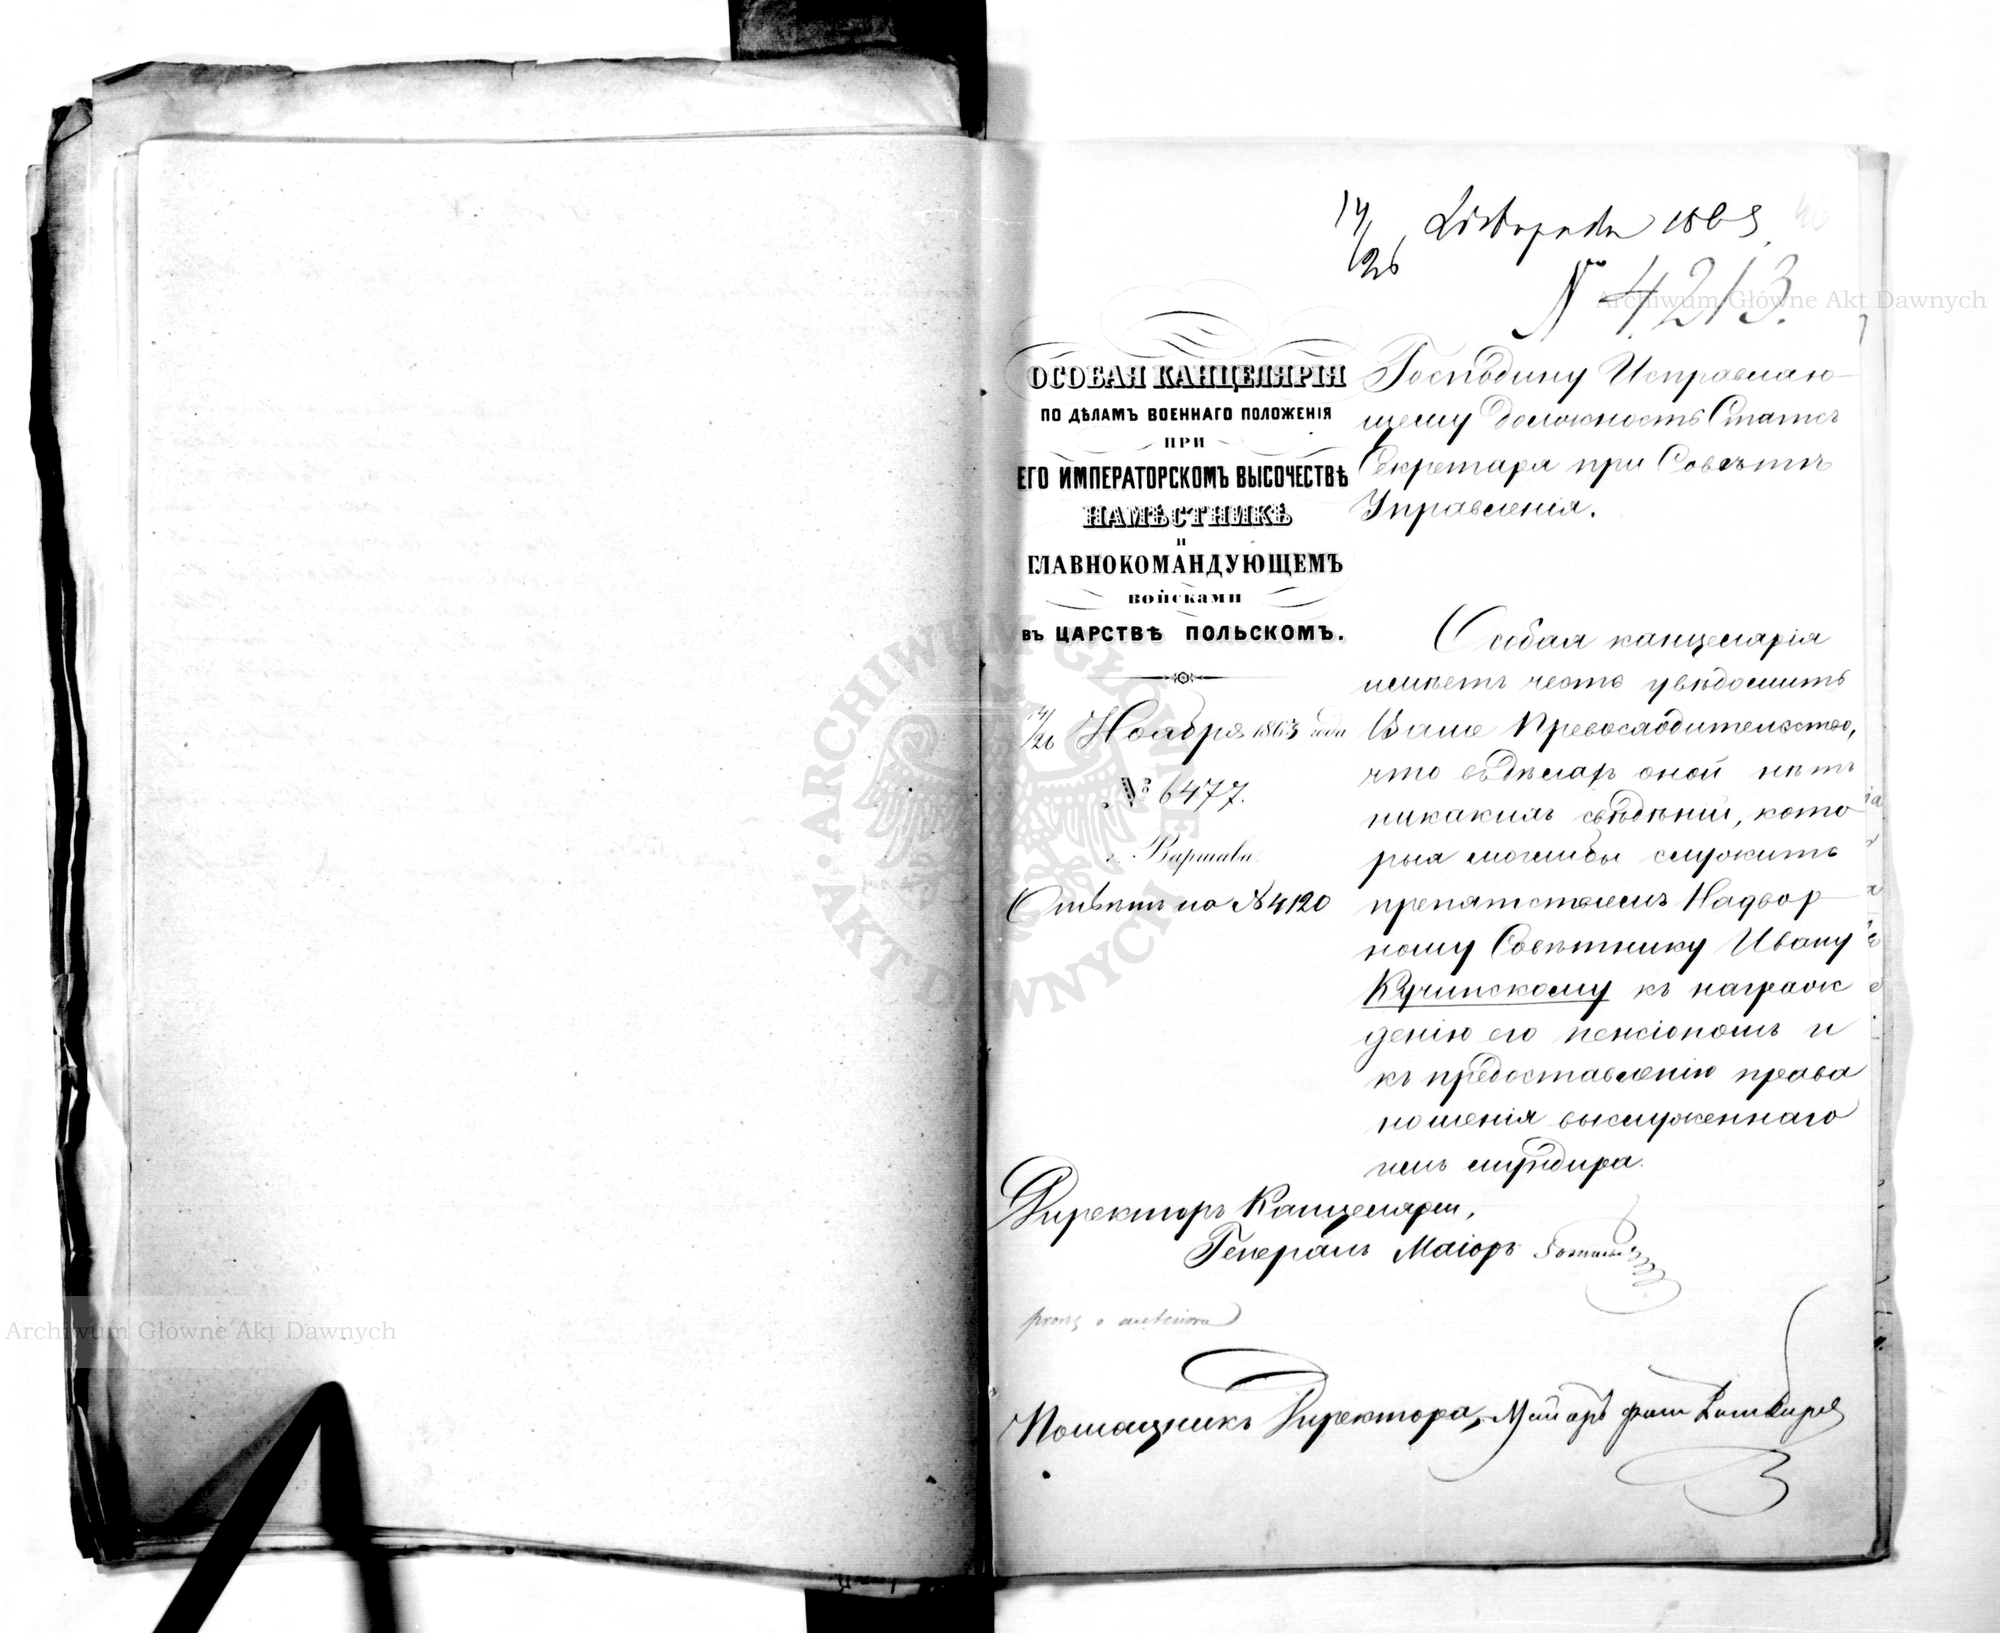 14/26 Listopada 1863
N 4213.
ОСОБАЯ КАНЦЕЛЯРІЯ
ПО ДѢЛАМЪ ВОЕННАГО ПОЛОЖЕНІЯ
ПРИ
ЕГО ИМПЕРАТОРСКОМЪ ВЫСОЧЕСТВѢ
НАМѢСТНИКѢ
И
ГЛАВНОКОМАНДУЮЩЕМЪ
ВОЙСКАМИ
ВЪ ЦАРСТВѢ ПОЛЬСКОМЪ.
14/26 Ноября 1863 года
№ 6477.
г. Варшава.
Отвѣтъ на № 4120
Господину Исправляю-
щему должность Статсъ
Секретаря при Совѣтѣ
Управленія.
Особая канцелярія
имѣетъ честь увѣдомить
Ваше Превосходительство,
что въ дѣлахъ оной нѣтъ
никакихъ свѣдѣній, кото
рыя моглибы служить
препятствіемъ Надвор-
ному Совѣтнику Ивану
Кучинскому къ награж
денію его пенсіономъ и
къ предоставленію права
ношенія выслуженнаго
имъ мундира.
Директоръ Канцеляріи,
Генералъ Маіоръ
Помощникъ Директора, Маіоръ фонъ
Archiwum Główne Akt Dawnych
Archiwum Główne Akt Dawnych
ARCHIWUM GŁÓWNE AKT DAWNYCH